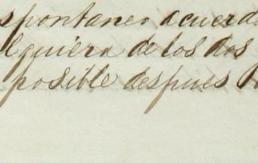 spontaneo acuerd
lquiera de los dos
posible despues